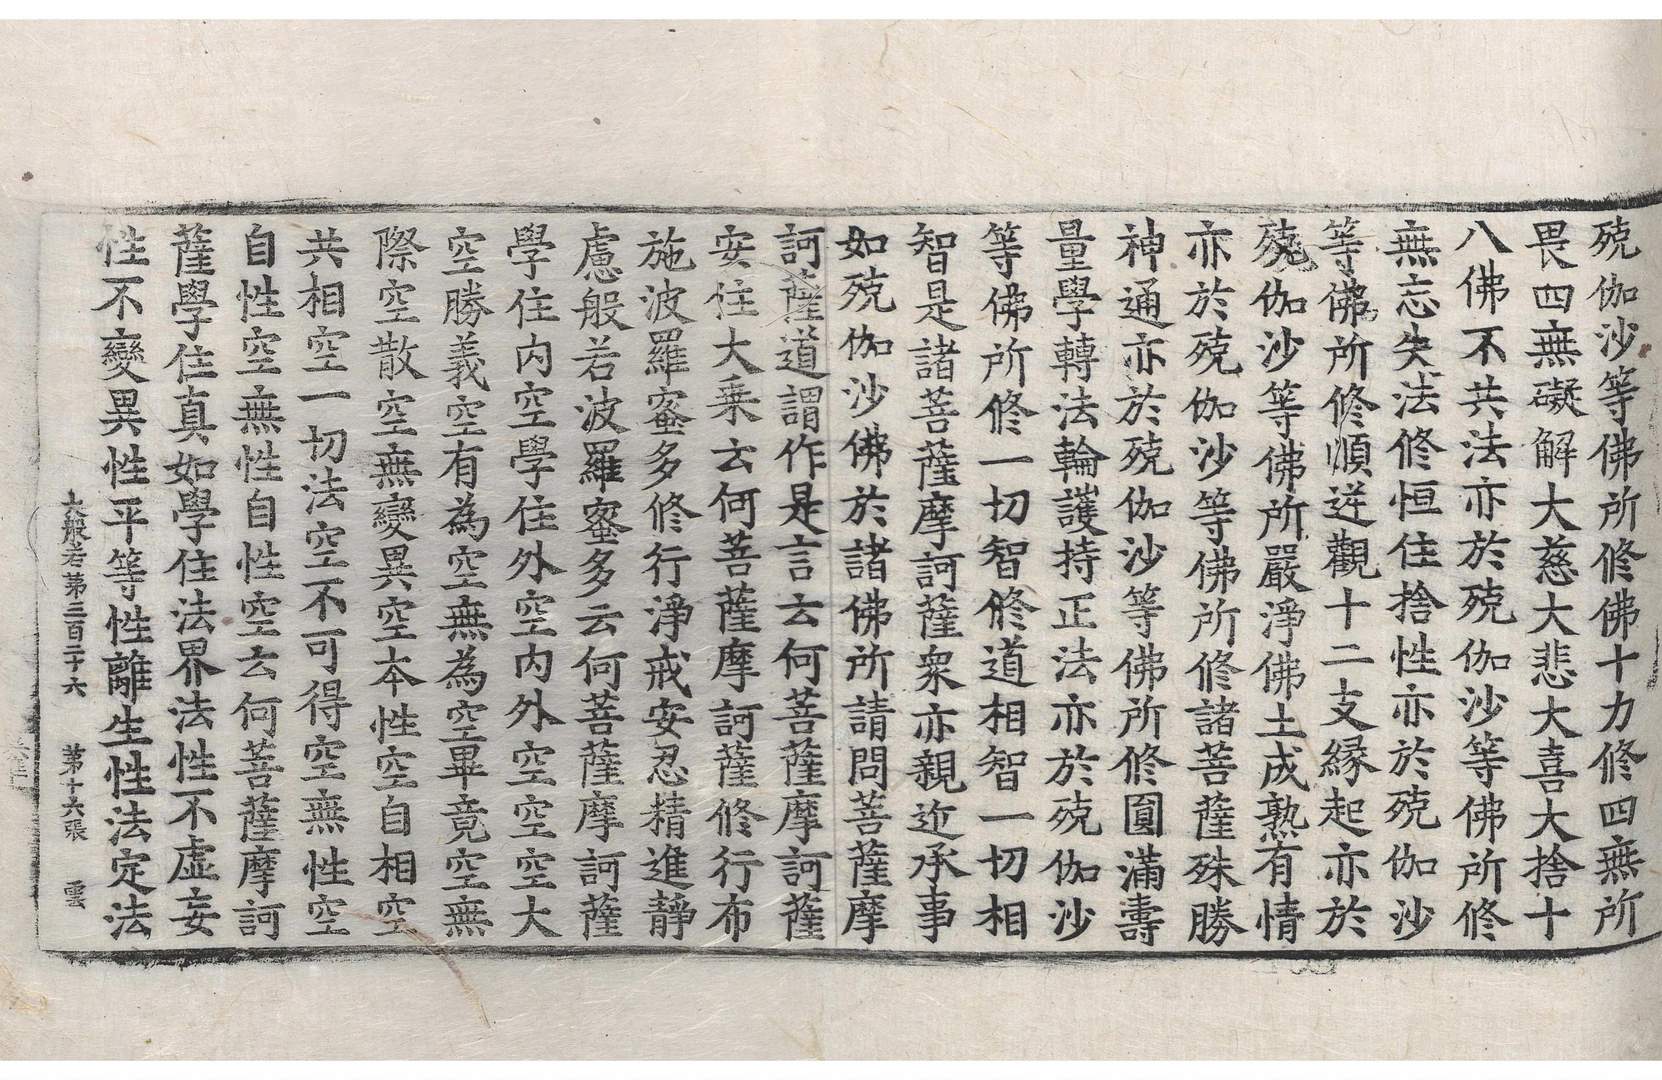 殑伽沙等佛所修佛十力修四無所
畏四無礙解大慈大悲大喜大捨十
八佛不共法亦於殑伽沙等佛所修
無忘失法修恒住捨性亦於殑伽沙
等佛所修順逆觀十二支縁起亦於
殑伽沙等佛所嚴淨佛土成熟有情
亦於殑伽沙等佛所修諸菩薩殊勝
神通亦於殑伽沙等佛所修圓滿壽
量學轉法輪護持正法亦於殑伽沙
等佛所修一切智修道相智一切相
智是諸菩薩摩訶薩衆亦親近承事
如殑伽沙佛於諸佛所請問菩薩摩
訶薩道謂作是言云何菩薩摩訶薩
安住大乗云何菩薩摩訶薩修行布
施波羅蜜多修行淨戒安忍精進静
慮般若波羅蜜多云何菩薩摩訶薩
學住内空學住外空内外空空空大
空勝義空有為空無為空畢竟空無
際空散空無變異空本性空自相空
共相空一切法空不可得空無性空
自性空無性自性空云何菩薩摩訶
薩學住真如學住法界法性不虚妄
性不變異性平等性離生性法定法
大般若第三百二十六　第十六張　雲